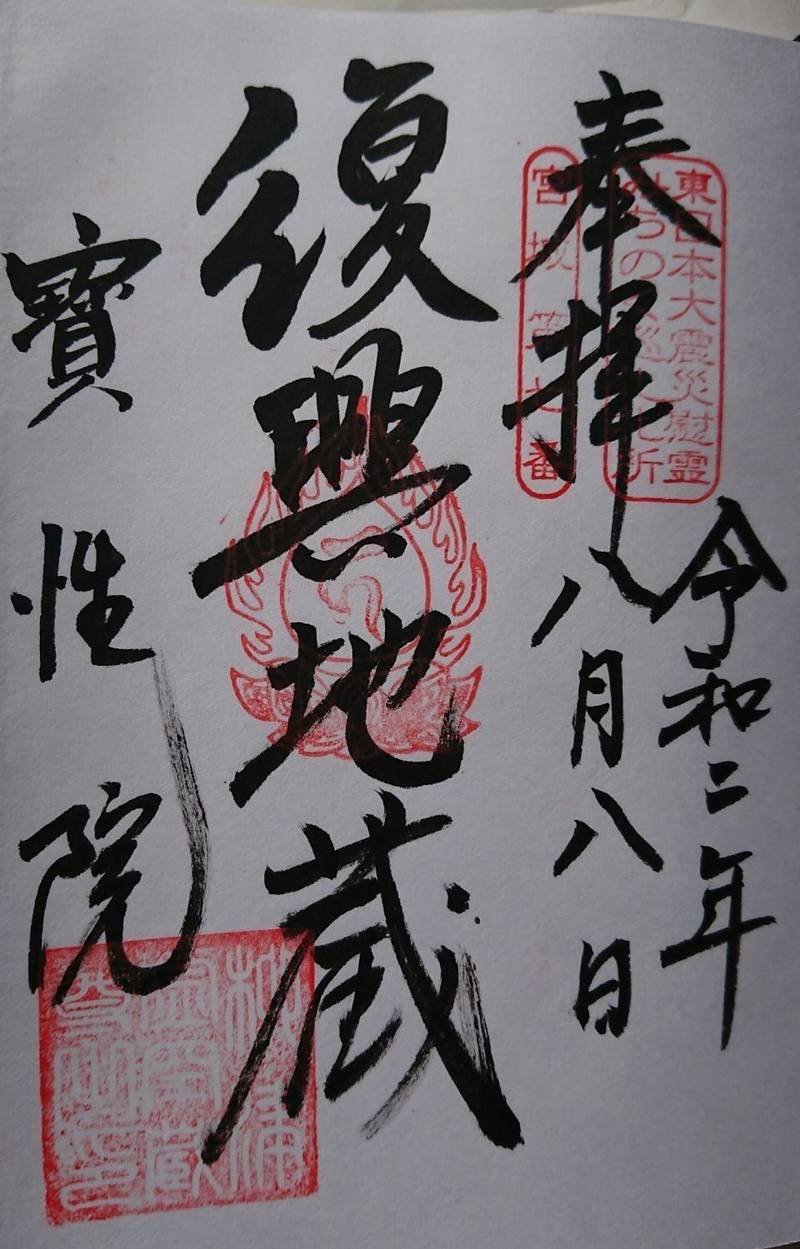 奉拝
令和二年
八月八日
東日本大震災慰霊
みちのく巡礼札所
宮城第七番
復興地蔵
寳性院